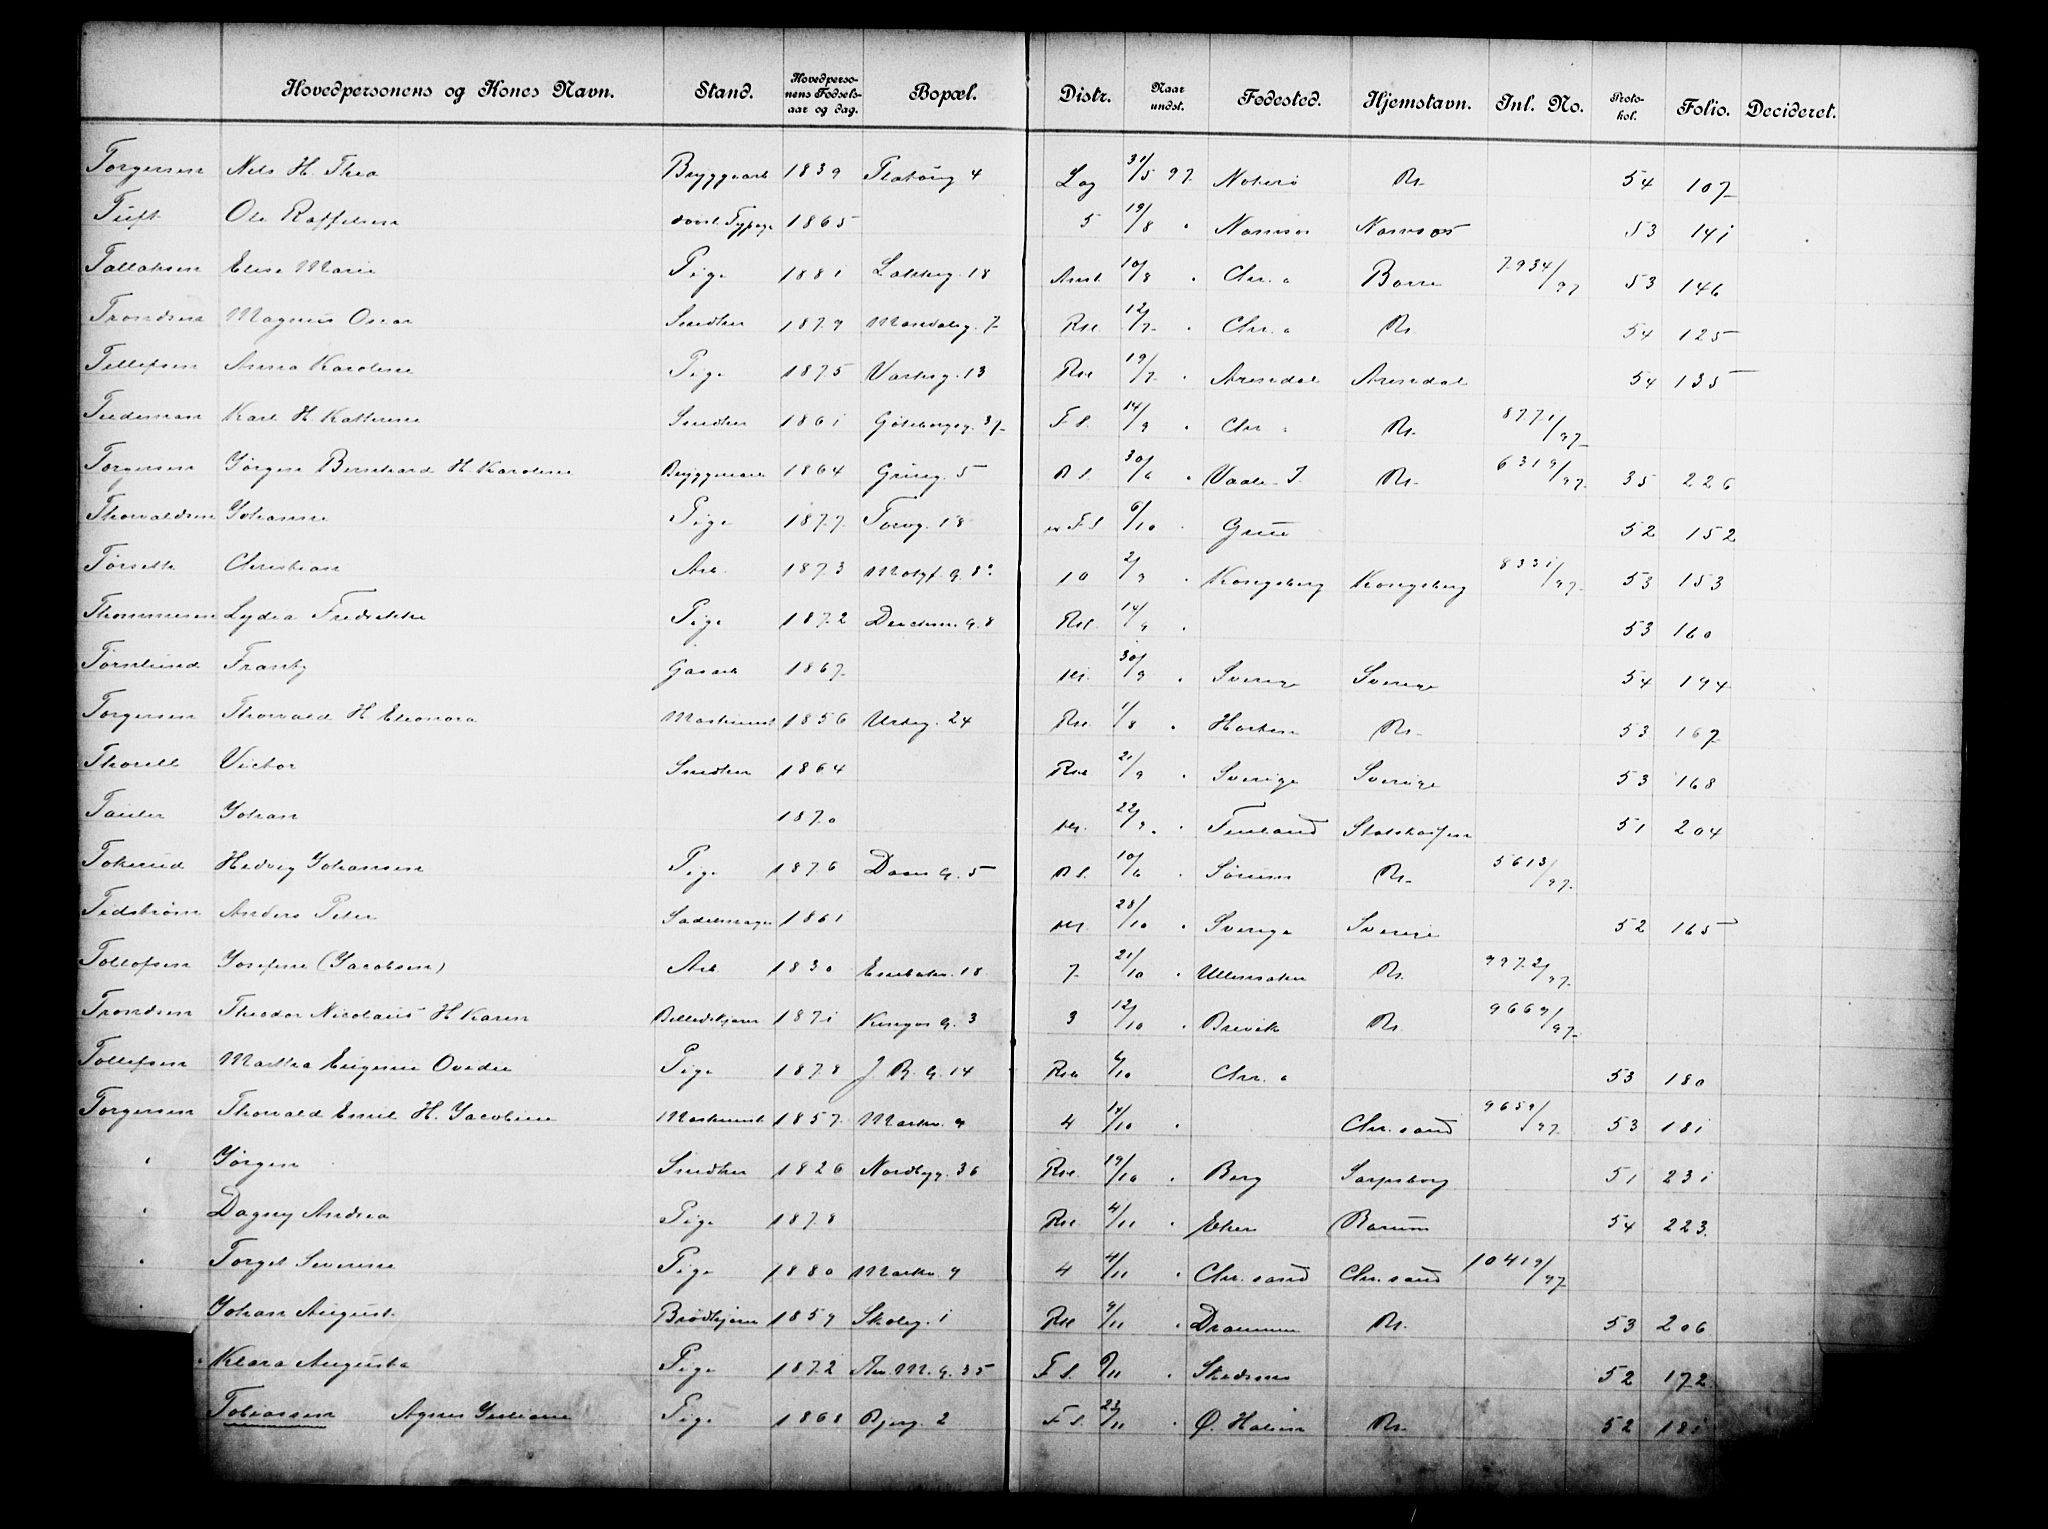 Hovedpersonens og Kones Navn. Stand. Hovedpersonens Fødselsaar og dag. Bopæl. Distr. Naar undst. Fødested. Hjemstavn. Inl. No. Protokol. Folio. Decideret.
Torgersen Nils H. Thea Bryggearb 1839 4 Lag 31/5 97 Nøterø Kr. 54 107
Tuft Ole 1865 5 19/8 " Namsos Namsos 53 141
Tallaksen Elise Marie Pige 1881 Lakkeg. 18 10/8 " Chr.a Borre 7934/97 53 146
Trondsen Magnus Oscar Snedker 1879 Mandalsg. 7 12/7 " Chr.a 54 125
Tellefsen Anna Karoline Pige 1875 Vahlsg. 13 19/7 " Arendal Arendal 54 135
Tiedeman Karl H. Kathrine Snedker 1861 Göteborgg. 37 F.S. 14/9 " Chr. " 8771/97
Torgersen Jørgen Bernhard H. Karoline Bryggearb 1864 Griisg. 5 30/6 " Vaale J. 6319/97 35 226
Thorvaldsen Johanne Pige 1877 Torvg. 18 F.S. 6/10 " Grue 52 152
Tørseth Christian Arb. 1873 10 2/9 " Kongsberg Kongsberg 8331/97 53 153
Thommesen Lydia Fredrikke Pige 1872 G. 8 14/9 " 53 160
Törnlund Gasarb 1867 30/9 " Sverige Sverige 54 194
Torgersen Thorvald H. Eleonora Maskinist 1856 Urteg. 24 1/8 " Horten 53 167
Thorell Victor Snedker 1864 21/9 " Sverige Sverige 53 168
Johan 1870 22/9 " Finland 51 204
Tokerud Hedvig Johansen Pige 1876 Daas G. 5 10/6 " Sørum 5613/97
Tidstrøm Anders Peter Sadelmager 1861 28/10 " Sverige Sverige 52 165
Tollofsen Josefine (Jacobsen) Arb 1830 Enebakv. 18 7 21/10 " Ullensaker 9972/97
Trondsen Theodor Nicolaus H. Karen Billedskjærer 1871 Kingos G. 3 3 12/10 " Brevik 9669/97
Tollefsen Martha Eugenie Ovedie Pige 1878 J. B. G. 14 6/10 Chr.a 53 180
Torgersen Thorvald Emil H. Jacobine Maskinist 1857 Markv. 9 4 14/10 " Chr.sand 9659/97 53 181
" Jørgen Snedker 1826 Nordbyg. 36 19/10 " Berg Sarpsborg 51 231
" Dagny Andrea Pige 1878 4/11 " Eker Bærum 54 223
" Torget Severine Pige 1880 Markv. 9 4 4/11 " Chr.sand Chr.sand 10419/97
" Johan August Brødkjører 1859 Skoleg. 1 9/11 " Drammen 53 206
" Klara Augusta Pige 1872 Thv. M. G. 35 F.S. 9/11 " Skedsmo 52 172
Tobiassen Agnes Juliane Pige 1868 Bjerg. 2 F.S. 23/11 " Ø. Halsen 52 181